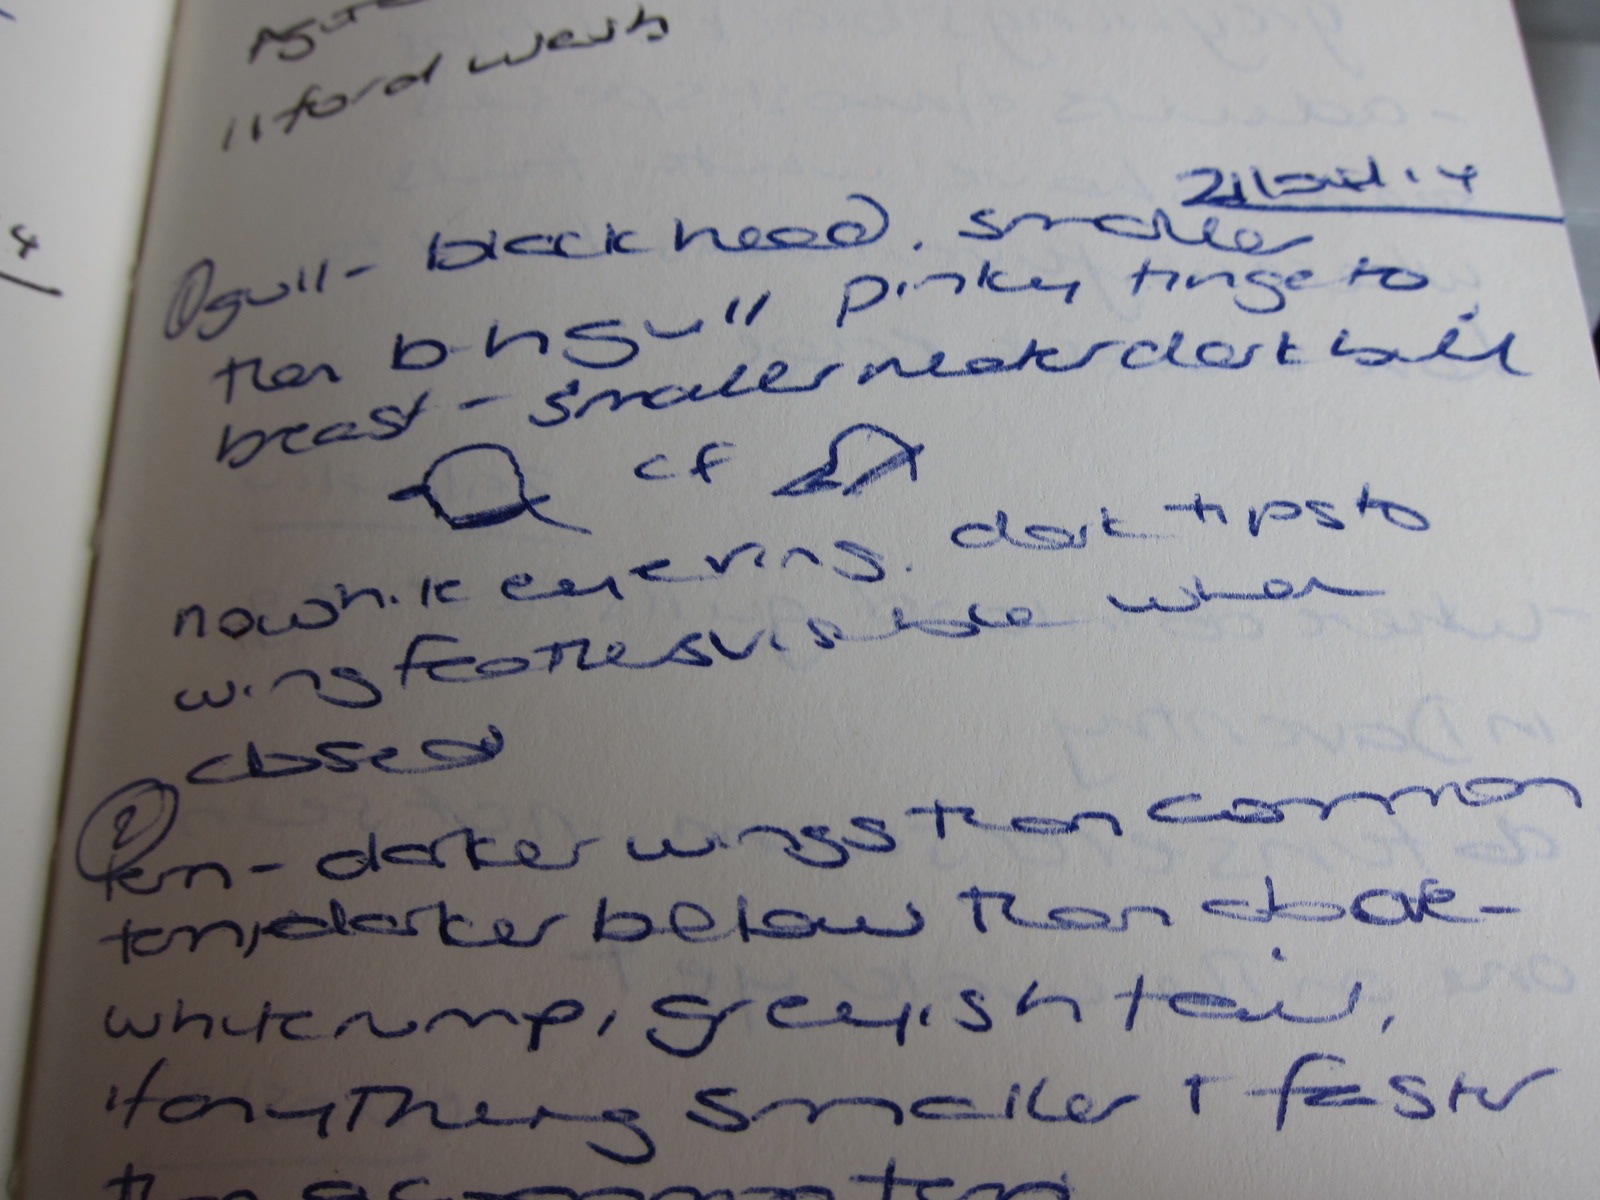 11 ford wash
① gull - black head. smaller
than b-h gull pinky tinge to
breast - smaller neater dark bill
cf
no white eye ring. dark tips to
wing feathers visible when
closed
②
tern - darker wings than common
tern, darker below than above -
white rump, greyish tail,
if anything smaller + faster
than a common tern
4